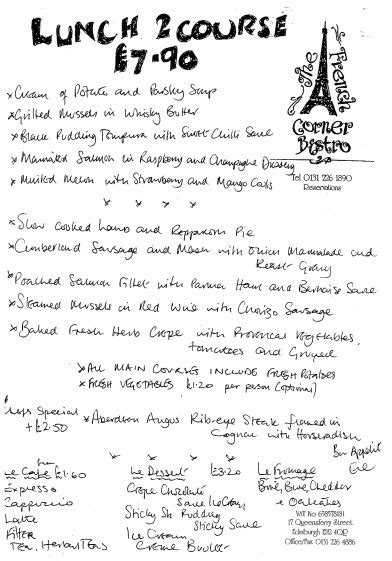 LUNCH 2 COURSE
£7.90
The French Corner Bistro
Tel 0131 226 1890
Reservations
* Cream of Potato and Parsley Soup
* Grilled Mussels in Whisky Butter
* Black Pudding Tempura with Sweet Chilli Sauce
* Marinated Salmon in Raspberry and Champagne Dressing
* Minted Melon with Strawberry and Mango Coulis
* * * *
* Slow Cooked Lamb and Pie
* Cumberland Sausage and Mash with Onion Marmalade and
Roast Gravy
* Poached Salmon Fillet with Parma Ham and Bernaise Sauce
* Steamed Mussels in Red Wine with Chorizo Sausage
* Baked Fresh Herb Crepe with Provencal Vegetables,
tomatoes and Gruyere
* ALL MAIN COURSES INCLUDE FRESH POTATOES
* FRESH VEGETABLES £1.20 per person (optional)
Special
+£2.50
* Aberdeen Angus Rib-eye Steak flamed in
Cognac with Horseradish
Bon Appetit
Le Café £1.60
Expresso
Cappuccino
Latte
Filter
Tea, Herbal Teas
Le Dessert £3.20
Crepe Chocolate
Sauce Ice Cream
Sticky Pudding
Sticky Sauce
Ice Cream
Creme Brulee
Le Fromage
Brie, Blue, Cheddar
+ Oatcakes
VAT No 678578181
17 Queensferry Street
Edinburgh EH2 4QP
Office/Fax 0131 226 4886